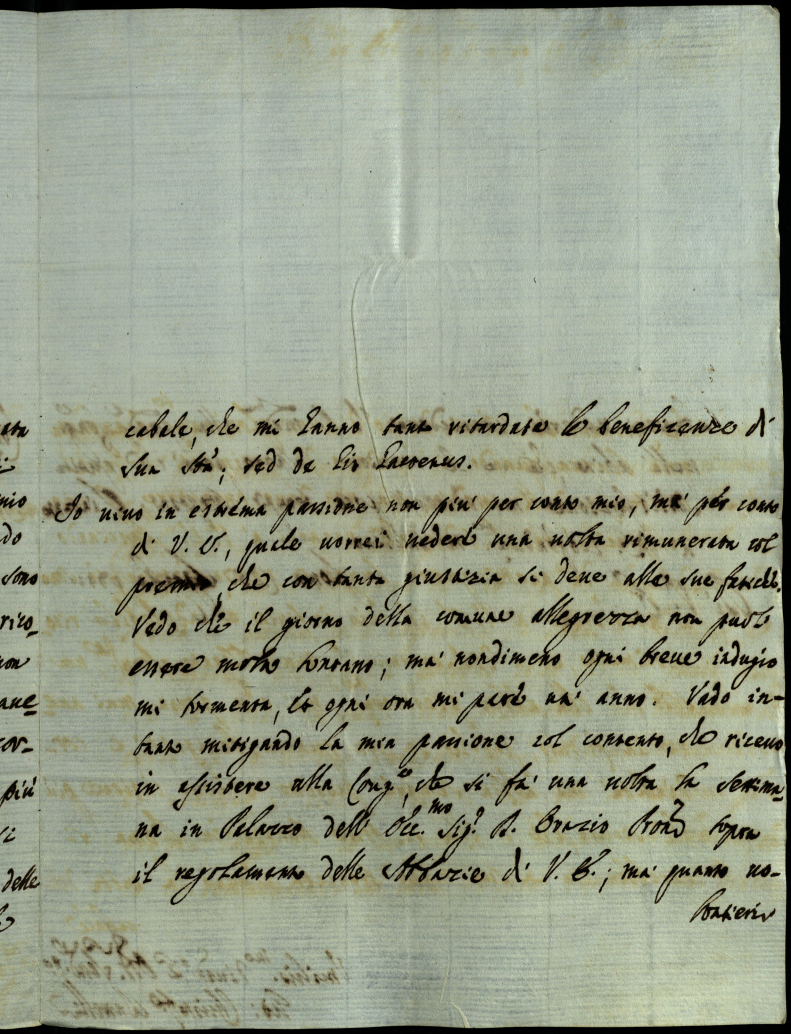 cabale, che mi hanno tanto ritardate le beneficenze di
Sua Stà; sed de his hactenus.
Io vivo in estrema passione non più per conto mio, mà per conto
di V. E., quale vorrei vedere una volta rimunerata col
premio, che con tanta giustizia si deve alle sue fatiche.
Vedo che il giorno della comune allegrezza non può
essere molto lontano; mà nondimeno ogni breve indugio
mi tormenta, et ogni ora mi pare un' anno. Vado in-
tanto mitigando la mia passione col contento, che ricevo
in assistere alla Cong.e, che si fà una volta la settima-
na in Palazzo dell' Ecc.mo Sig.r D. Orazio sopra
il regolamento delle Abbazie di V. E.; mà quanto vo-
lontieri
ata
mio
do
sono
rico-
non
ane-
cor-
più
si
delle